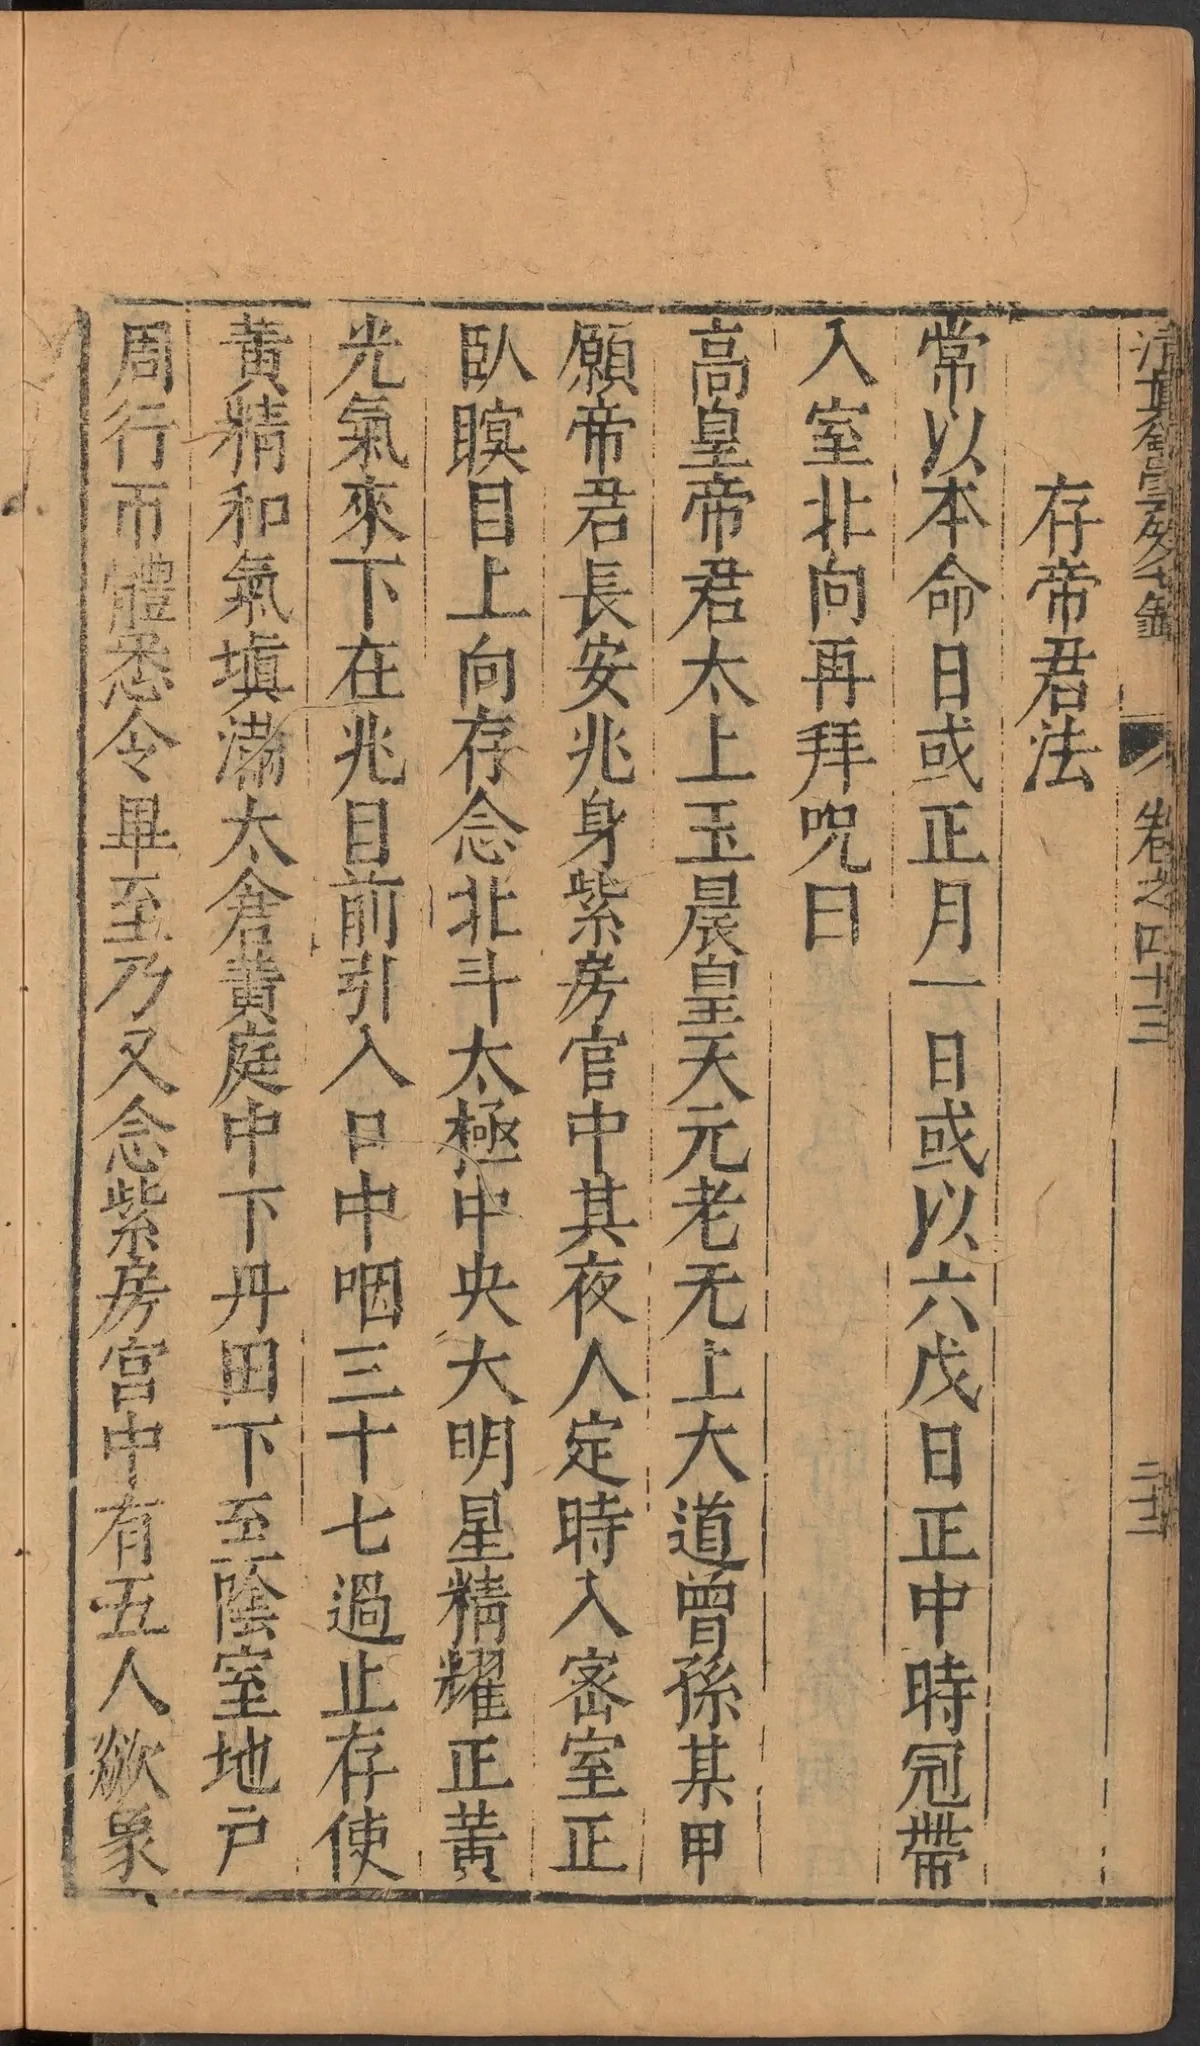 清真館雲笈七籤 卷之四十三 二十二
存帝君法
常以本命日或正月一日或以六戊日正中時冠帶
入室北向再拜呪曰
高皇帝君太上玉晨皇天元老无上大道曾孫某甲
願帝君長安兆身紫房官中其夜人定時入密室正
臥瞑目上向存念北斗太極中央大明星精耀正黃
光氣來下在兆目前引入口中咽三十七過止存使
黃精和氣塡滿太倉黃庭中下丹田下至陰室地戶
周行帀體悉令畢至乃又念紫房宮中有五人歘象